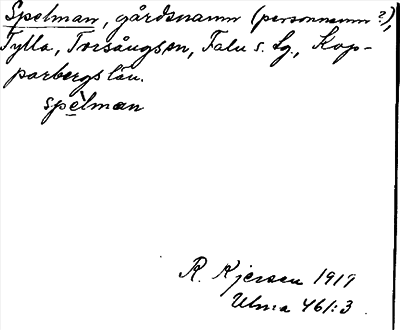 Spelman, gårdsnamn (personnamn?),
Tylla, Torsångs sn, Falu s. lg., Kop-
parbergs län.
spèlman
R. Kjersen 1917
Ulma 461:3.